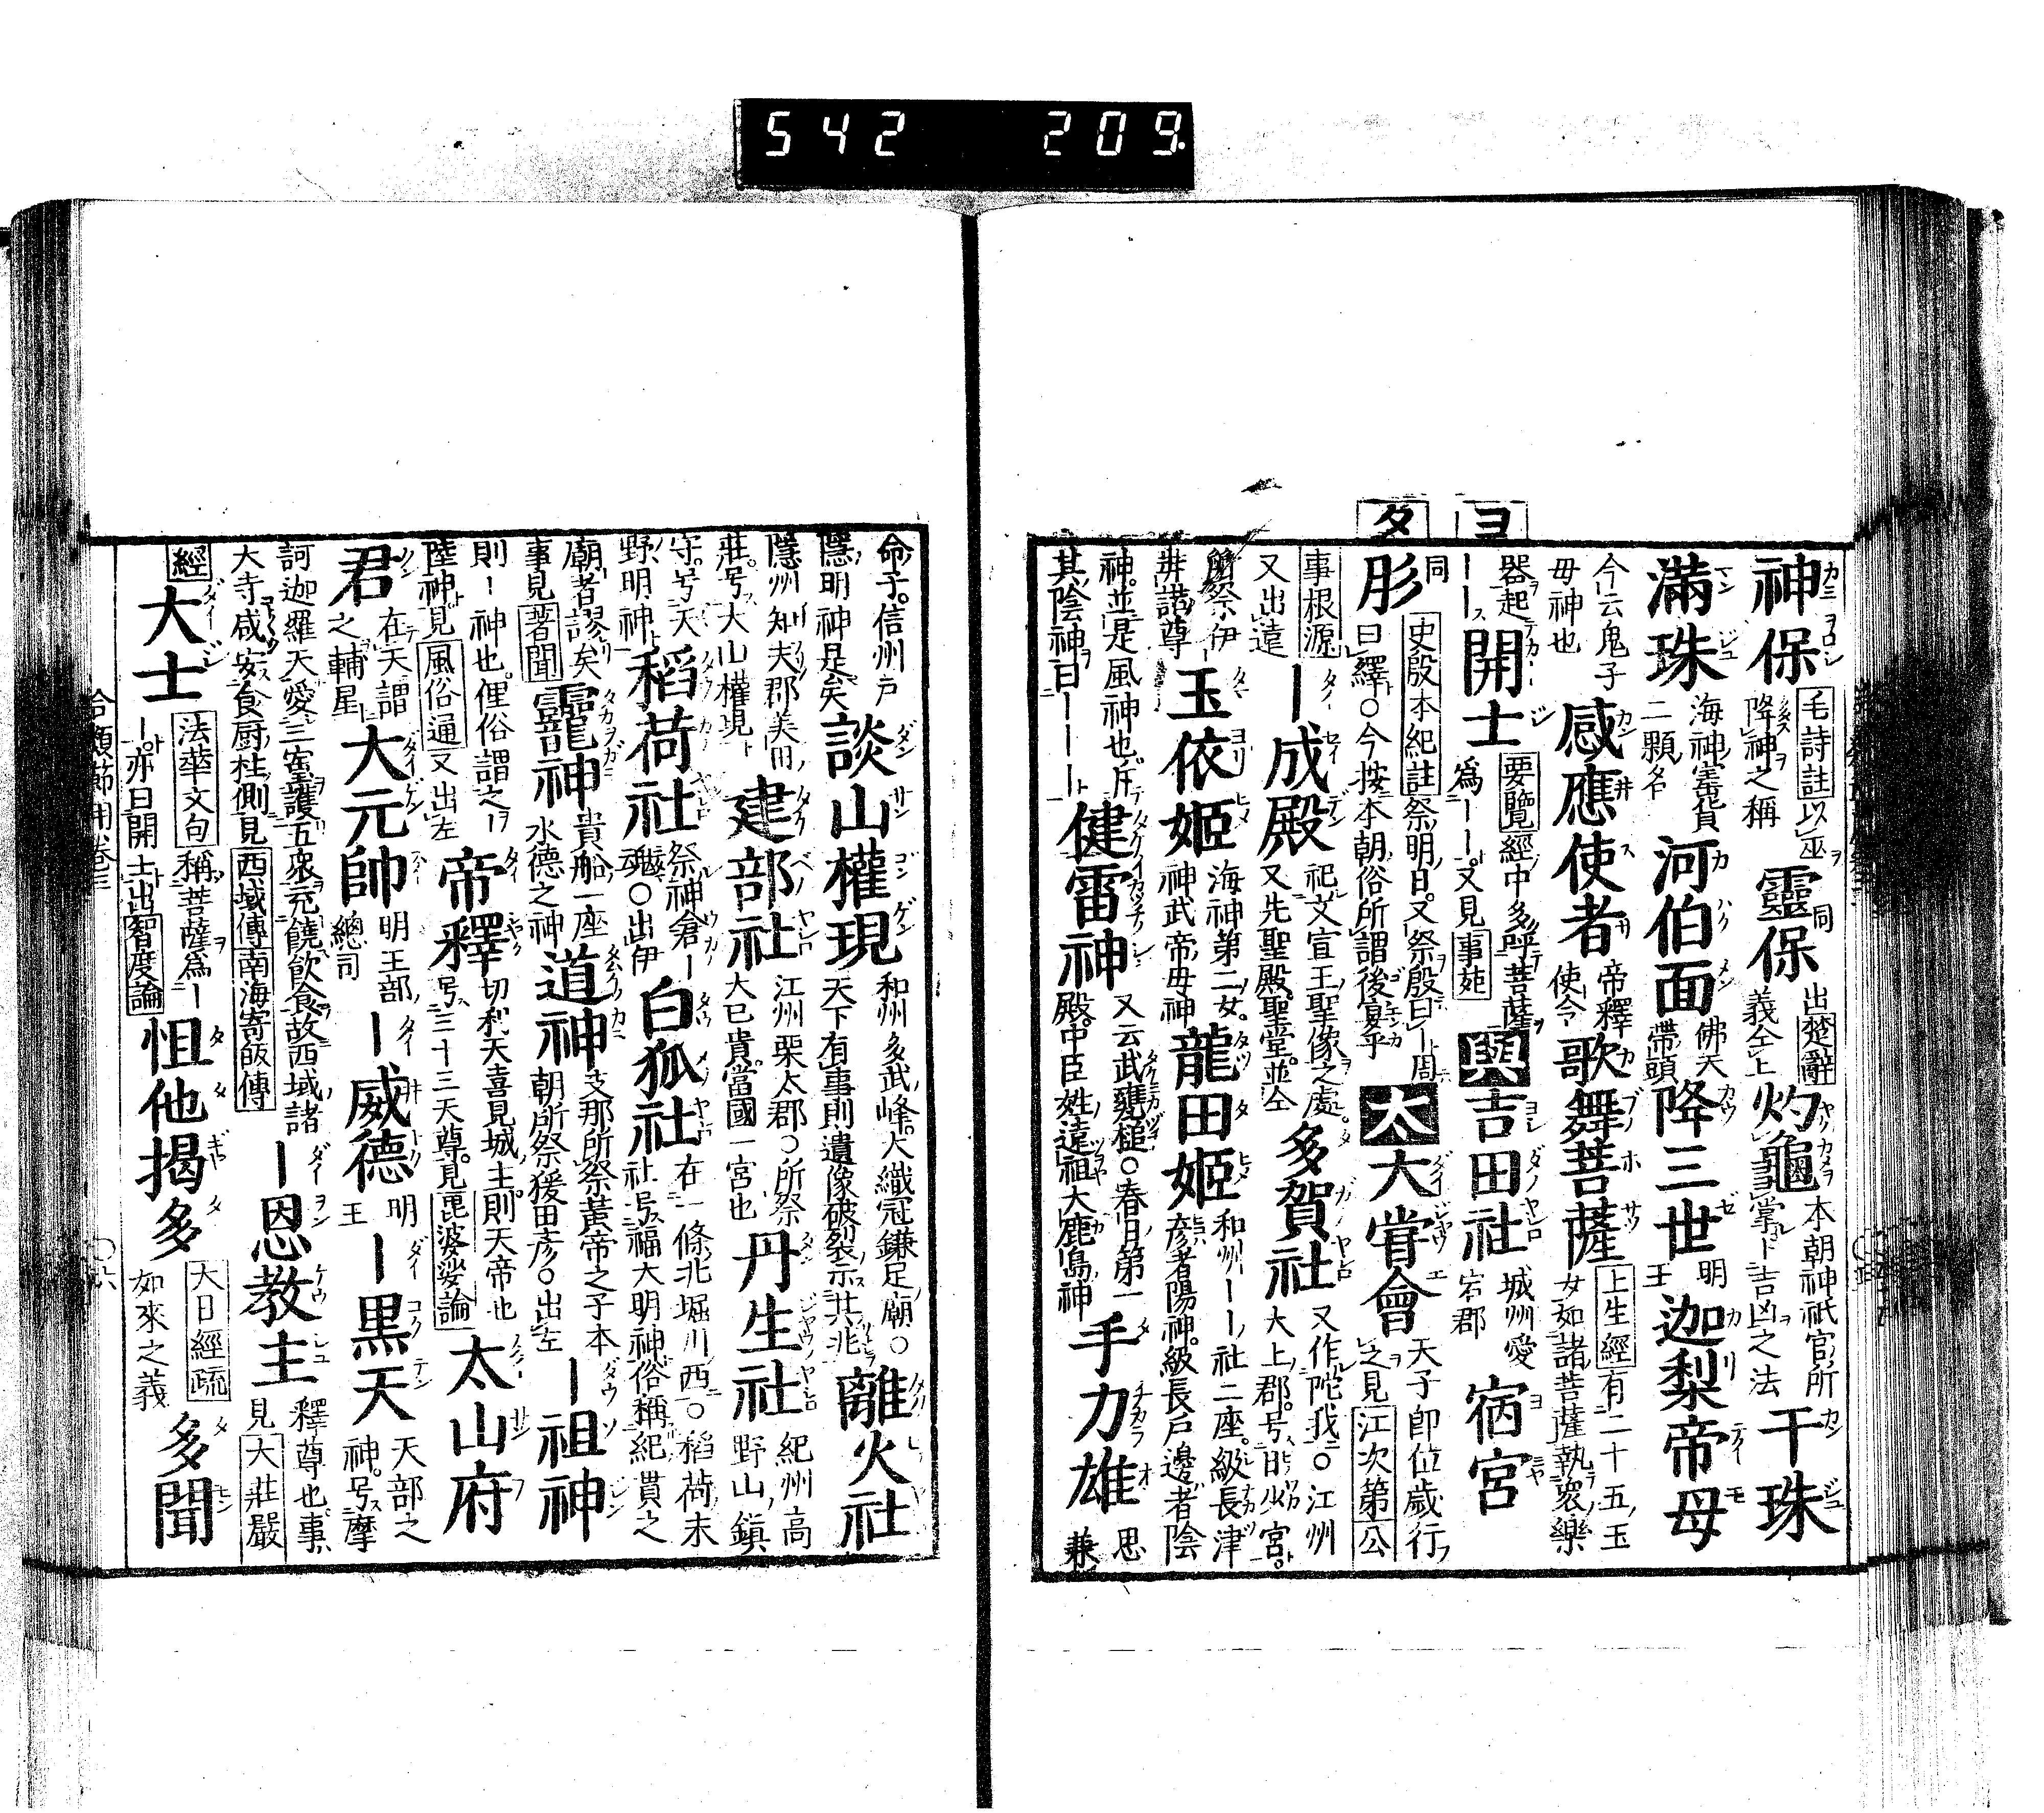 542 209.
ヨ
タ
神保 毛詩註以巫降神之稱 靈保 同 出楚辭義仝上 灼龜 本朝神祇官所掌ト吉凶之法 干珠
滿珠 海神寶貨二顆名 河伯面 佛天帶頭 降三世 明王 迦梨帝母
今云鬼子母神也 感應使者 帝釋使令 歌舞菩薩 上生經有二十五玉女如諸菩薩執衆樂
器起ーー 開士 要覽經中多呼菩薩爲ーー又見事苑 與 吉田社 城州愛宕郡 宿宮
肜 同 史殷本紀註祭明日又祭殷曰ー周曰繹○今按本朝俗所謂後宴乎 太 大甞會 天子卽位歲行之見江次第公
事根源又出遠 ー成殿 祀文宣王聖像之處又先聖殿聖堂並仝 多賀社 又作陀我○江州犬上郡号日少宮
所祭伊弉諾尊 玉依姬 海神第二女神武帝母神 龍田姬 和州ーーノ社二座級長津彥者陽神級長戶邊者陰
神並是風神也斥其陰神曰ーーー 健雷神 又云武甕槌○春日第一殿中臣姓遠祖大鹿島神 手力雄 思兼
命子信州戶隱明神是矣 談山權現 和州多武峰大織冠鎌足廟○天下有事則遺像破裂示其兆 離火社
隱州知夫郡美田莊号大山權現 建部社 江州栗太郡○所祭大已貴當國一宮也 丹生社 紀州高野山鎮
守号天野明神 稻荷社 祭神倉ー魂○出伊 白狐社 在一條北堀川西○稻荷末社号福大明神俗稱紀貫之
廟者謬矣事見著聞 龗神 貴船一座水德之神 道神 支那所祭黃帝之子本朝所祭猨田彥○出左 ー祖神
則ー神也俚俗謂之ー陸神見風俗通又出左 帝釋 切利天喜見城主則天帝也号三十三天尊見毘婆娑論 太山府
君 在天謂之輔星 大元帥 明王部總司 ー威德 明王 ー黑天 天部之神号摩
訶迦羅天愛三寶護五衆元饒飮食故西域諸大寺咸安食厨柱側見西域傳南海寄皈傳 ー恩敎主 釋尊也事見大莊嚴
經 大士 法華文句稱菩薩爲ーー亦曰開士出智度論 怛他揭多 大日經疏如來之義 多聞
合類節用卷三